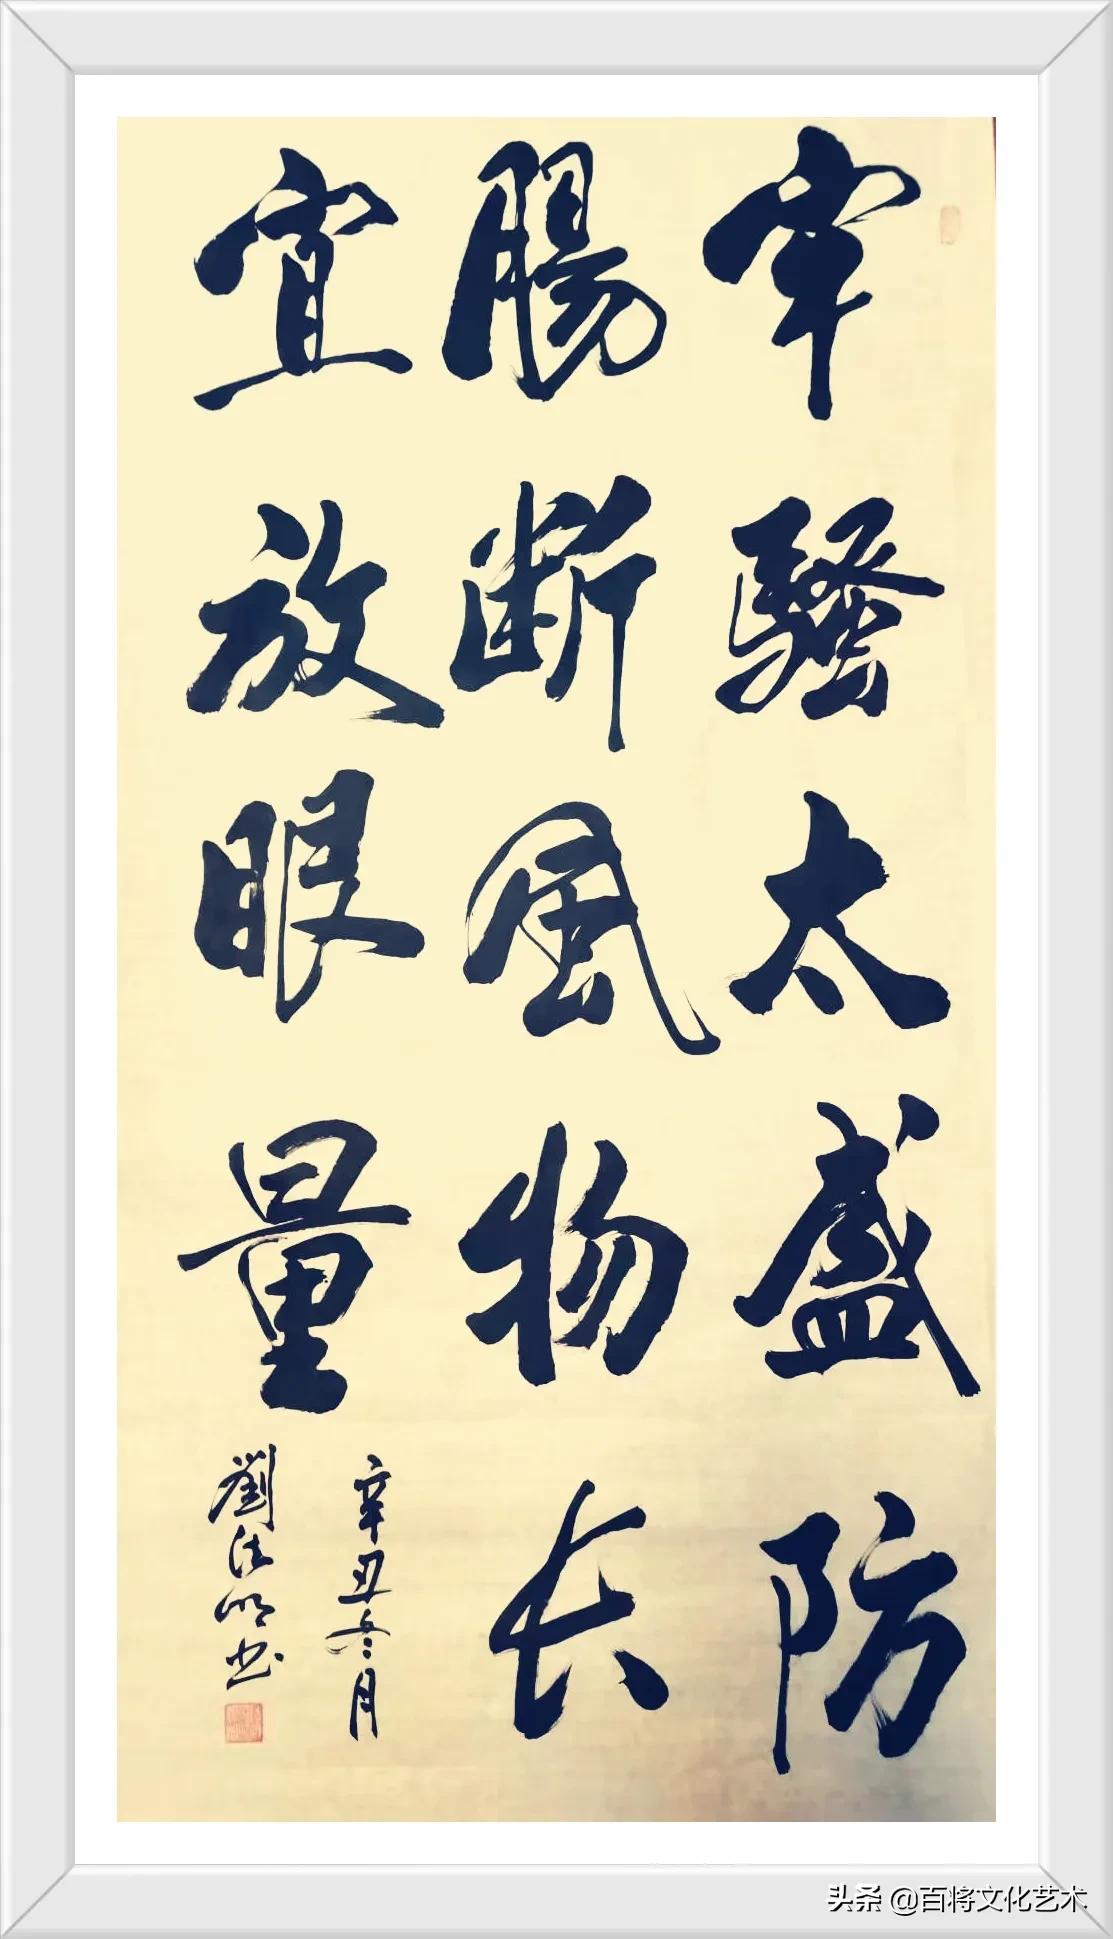 牢騷太盛防
腸断風物长
宜放眼量
辛丑冬月
劉法明书
头条 @百将文化艺术